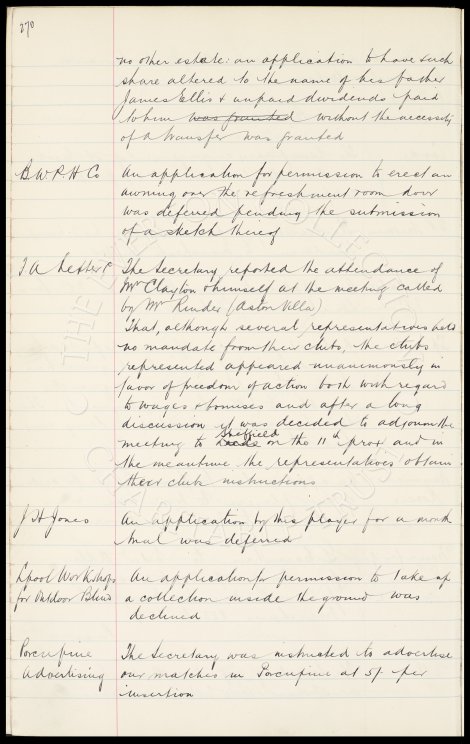 270
no other estate: an application to have such
share altered to the name of his father
James Ellis & unpaid dividends paid
to him was granted without the necessity
of a transfer was granted
B W P. H Co
An application for permission to erect an
awning over the refreshment room door
was deferred pending the submission
of a sketch thereof
The Secretary reported the attendance of
Mr Clayton & himself at the meeting called
by Mr Rinder (Aston Villa)
That, although several representatives held
no mandate from their clubs, the clubs
represented appeared unanimously in
favor of freedom of action both with regard
to wages & bonuses and after a long
discussion it was decided to adjourn the
Sheffield
meeting to Leeds on the 11th prox and in
the meantime the representatives obtain
their club instructions
J H Jones
An application by this player for a month
trial was deferred
Lpool Workshops
for Outdoor Blind
An application for permission to take up
a collection inside the ground was
declined
Porcupine
Advertising
The Secretary was instructed to advertise
our matches in Porcupine at 5/- per
insertion